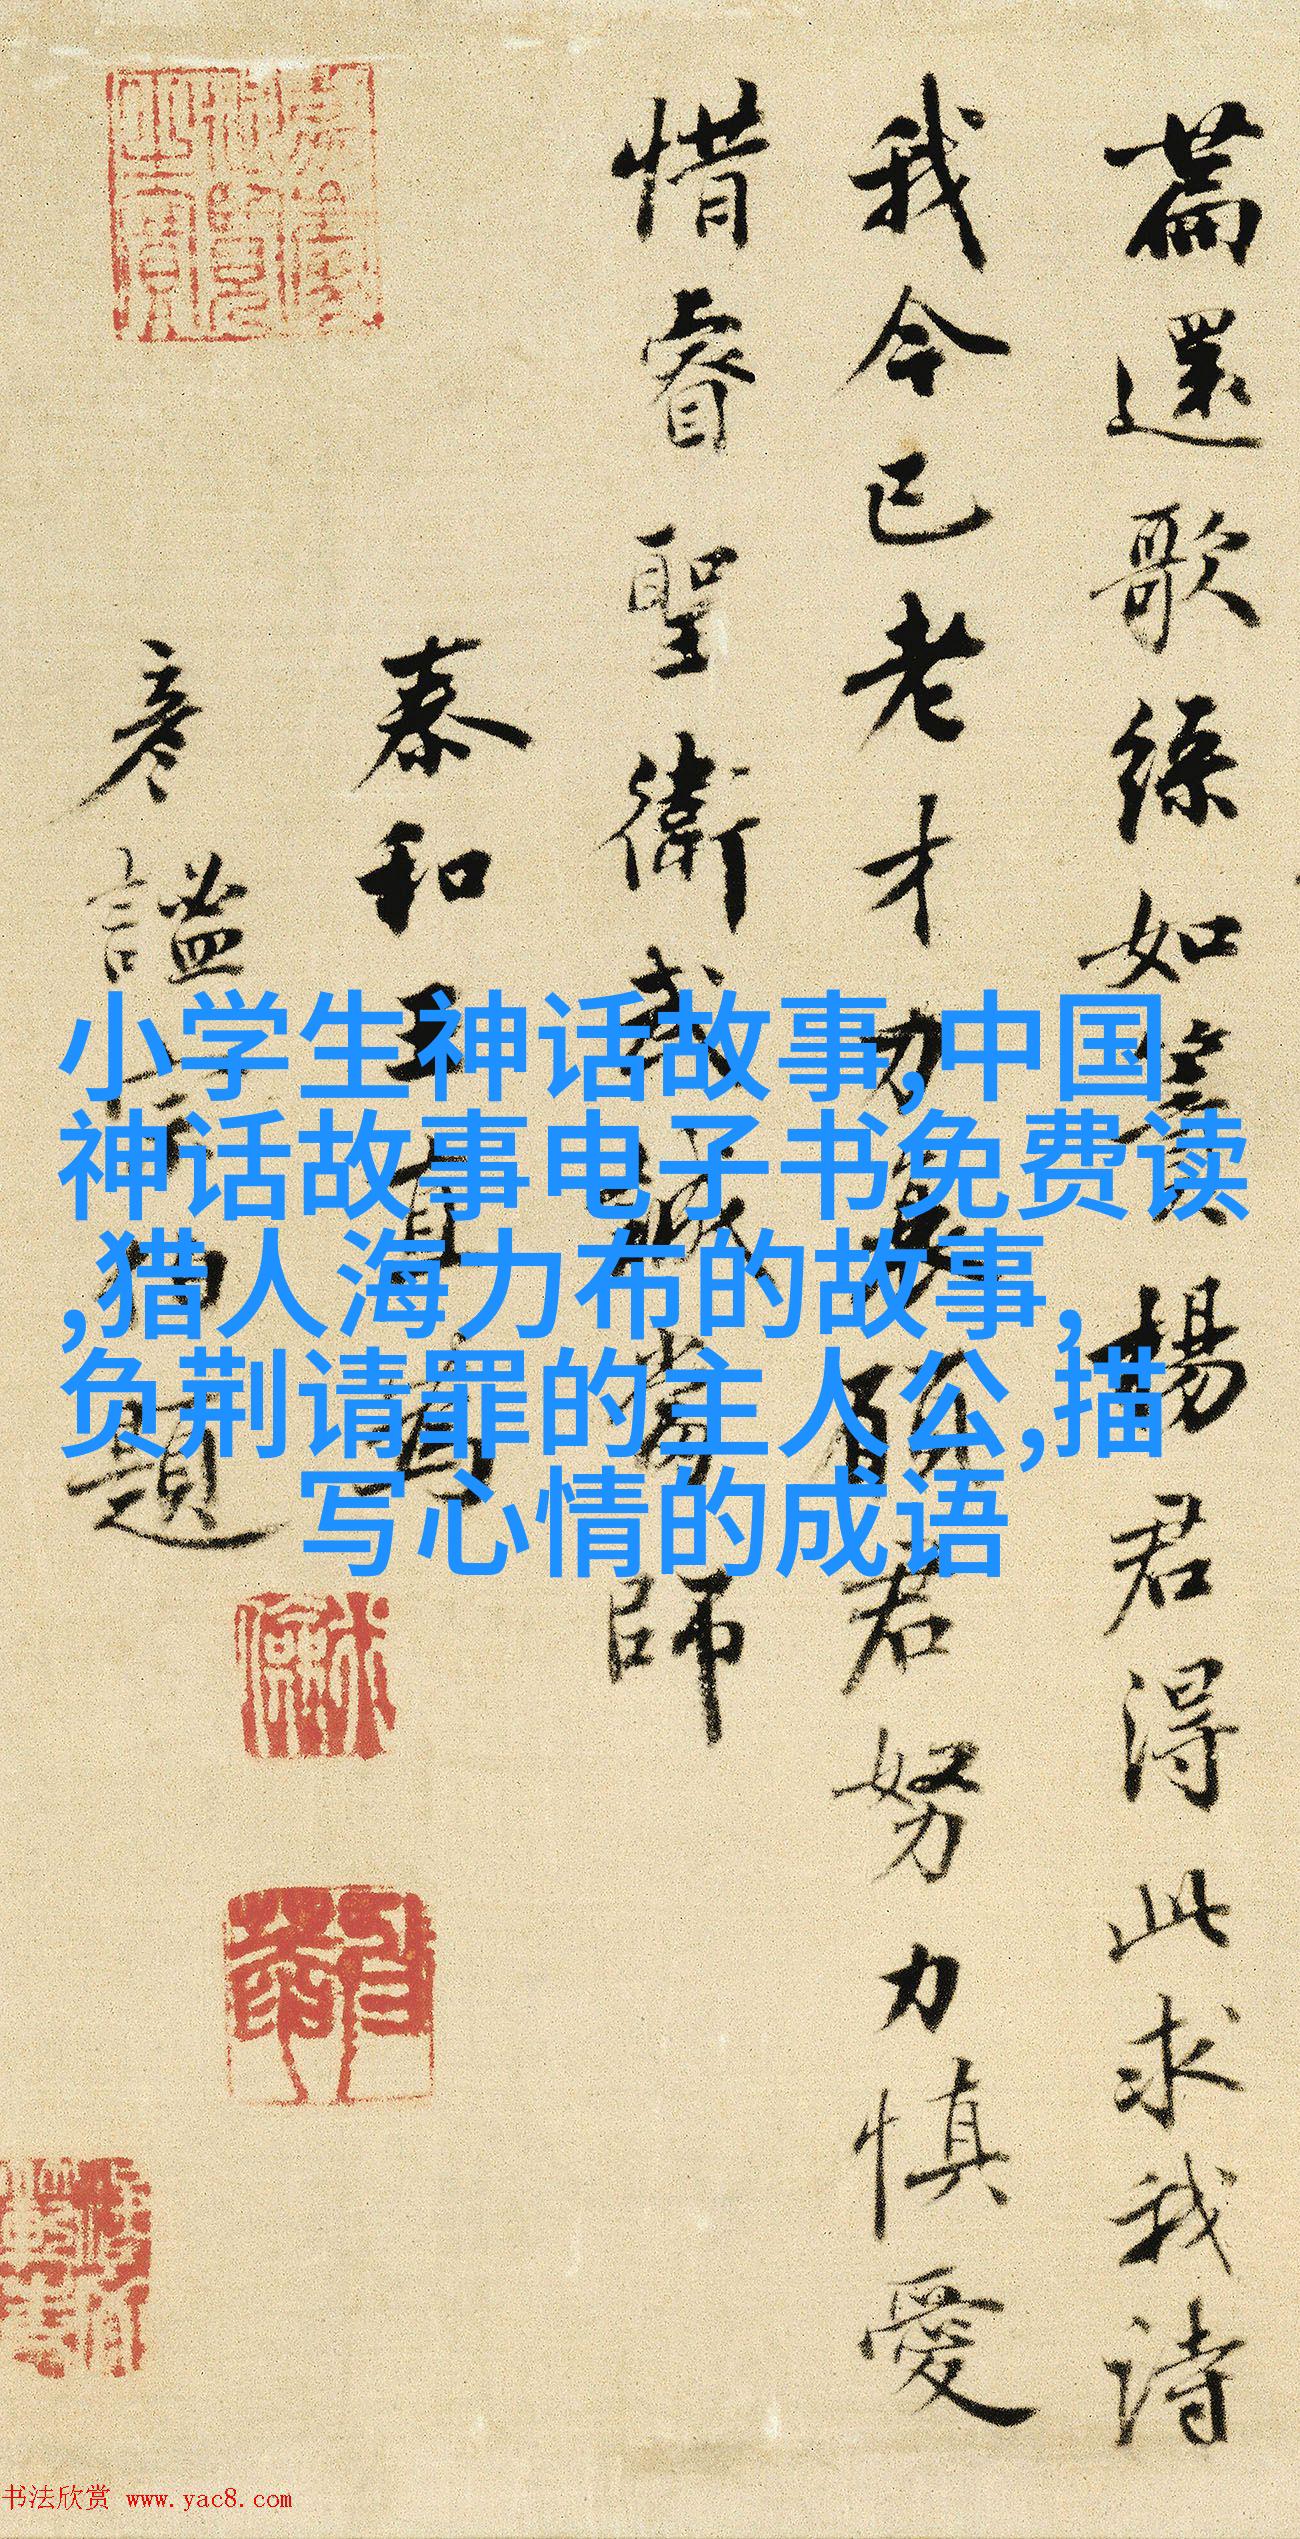 篇還歌綠如簀楊君得此求我詩
我今已老才力衰願君努力慎愛
惜睿聖衛武誠當師
泰和王直為
彥謐題
小学生神话故事,中国
神话故事电子书免费读
,猎人海力布的故事,
负荆请罪的主人公,描
写心情的成语
书法欣赏 www.yac8.com